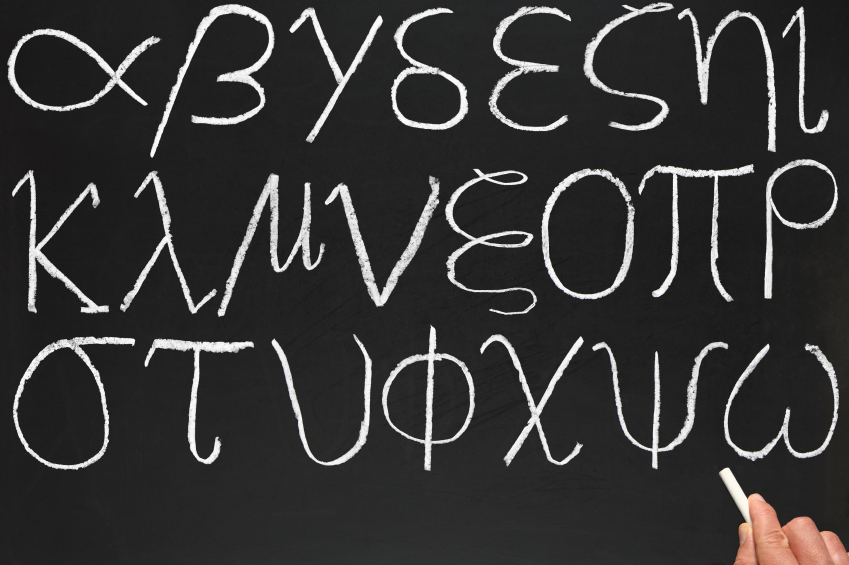 αβγδεζηι
κλμνξοπρ
στυφχψω